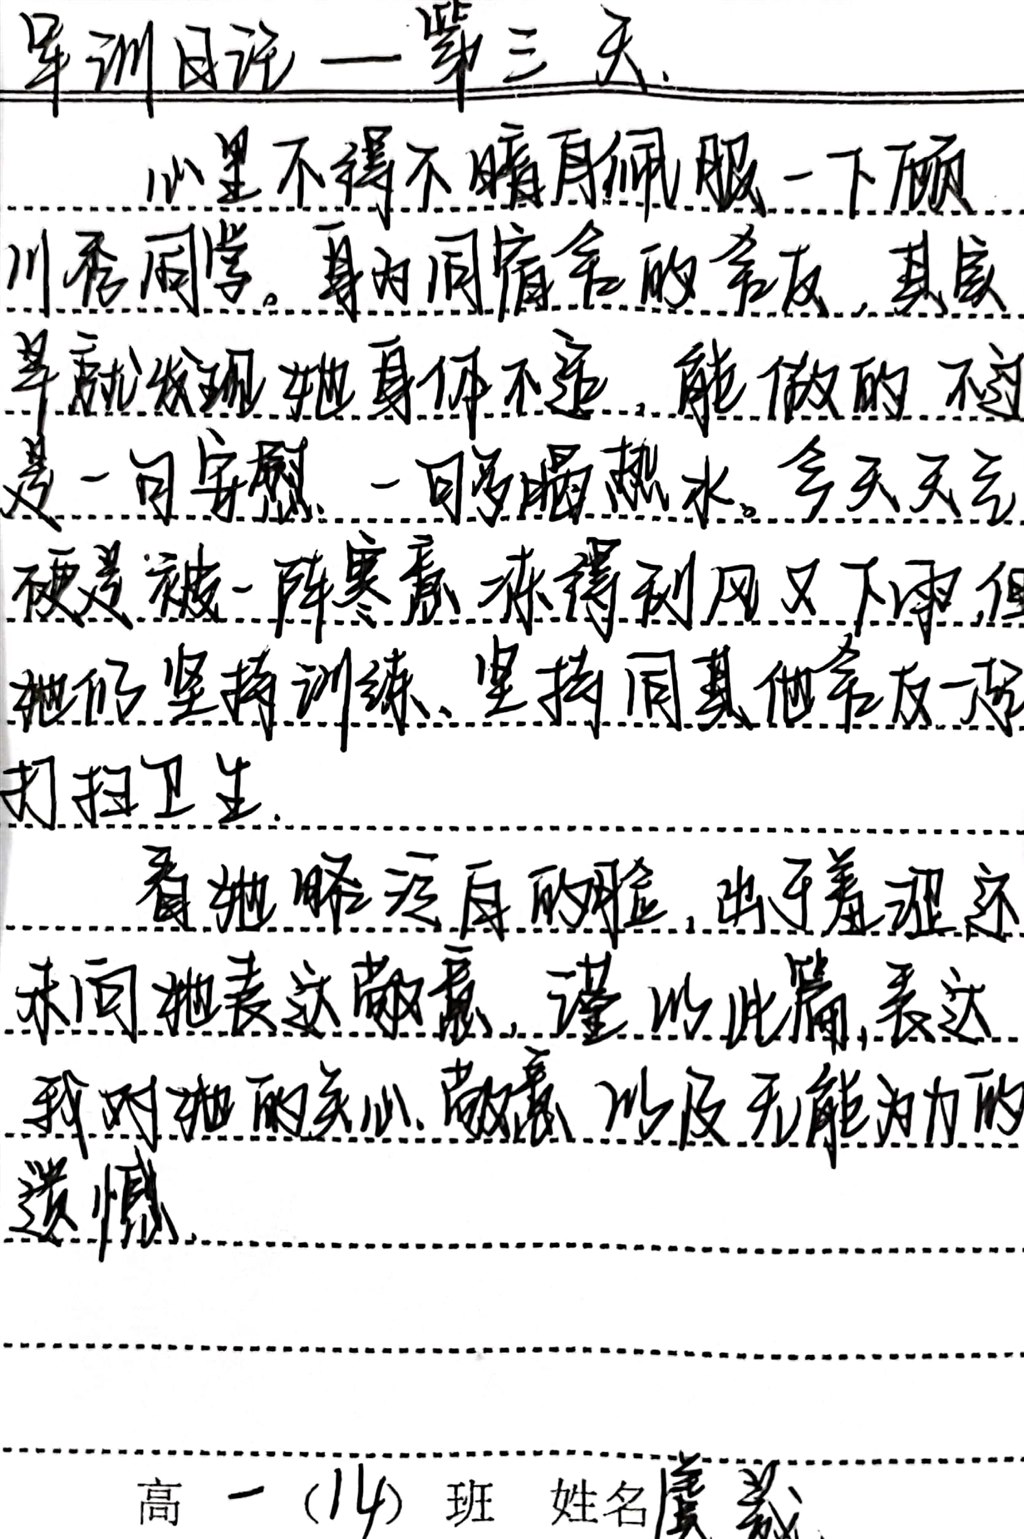 军训日记——第三天.
心里不得不暗自佩服一下顾
川秀同学。身为同宿舍的舍友,其实
早就发现她身体不适,能做的不过
是一句安慰 一句多喝热水。今天天气
硬是被一阵寒意冻得刮风又下雨,但
她仍坚持训练、坚持同其他舍友一起
打扫卫生.
看她略泛白的脸,出于羞涩还
未向她表达敬意,谨以此篇,表达
我对她的关心、敬意 以及无能为力的
遗憾.
高一(14)班 姓名虞